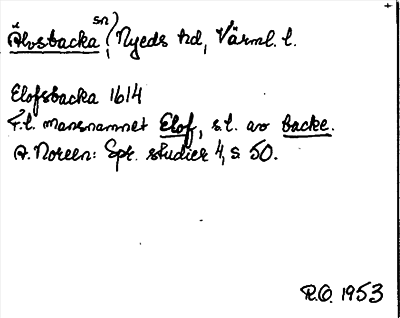 Älvsbacka (sn), Nyeds hd, Värml. l.
Elofsbacka 1614
F.l. mansnamnet Elof, s.l. av backe.
A. Noreen: Spr. studier 4, s. 50.
R.O. 1953